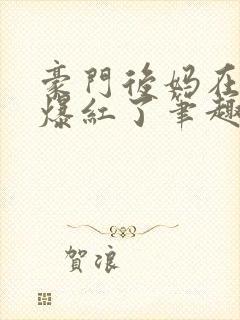 豪門後媽在
爆紅了筆趣
賀浪